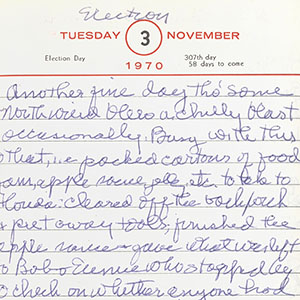 Election
TUESDAY 3 NOVEMBER
Election Day 307th day
58 days to come
1970
Another fine day tho' some
North wind blew a chilly blast
occasionally. Busy with this
that, i.e. packed cartons of food
jam, apple sauce, etc. to take to
cleared off the back porch
put away tools, finished the
apple sauce - gave what was left
to Bob & Eunie who stopped by
to check on whether anyone had